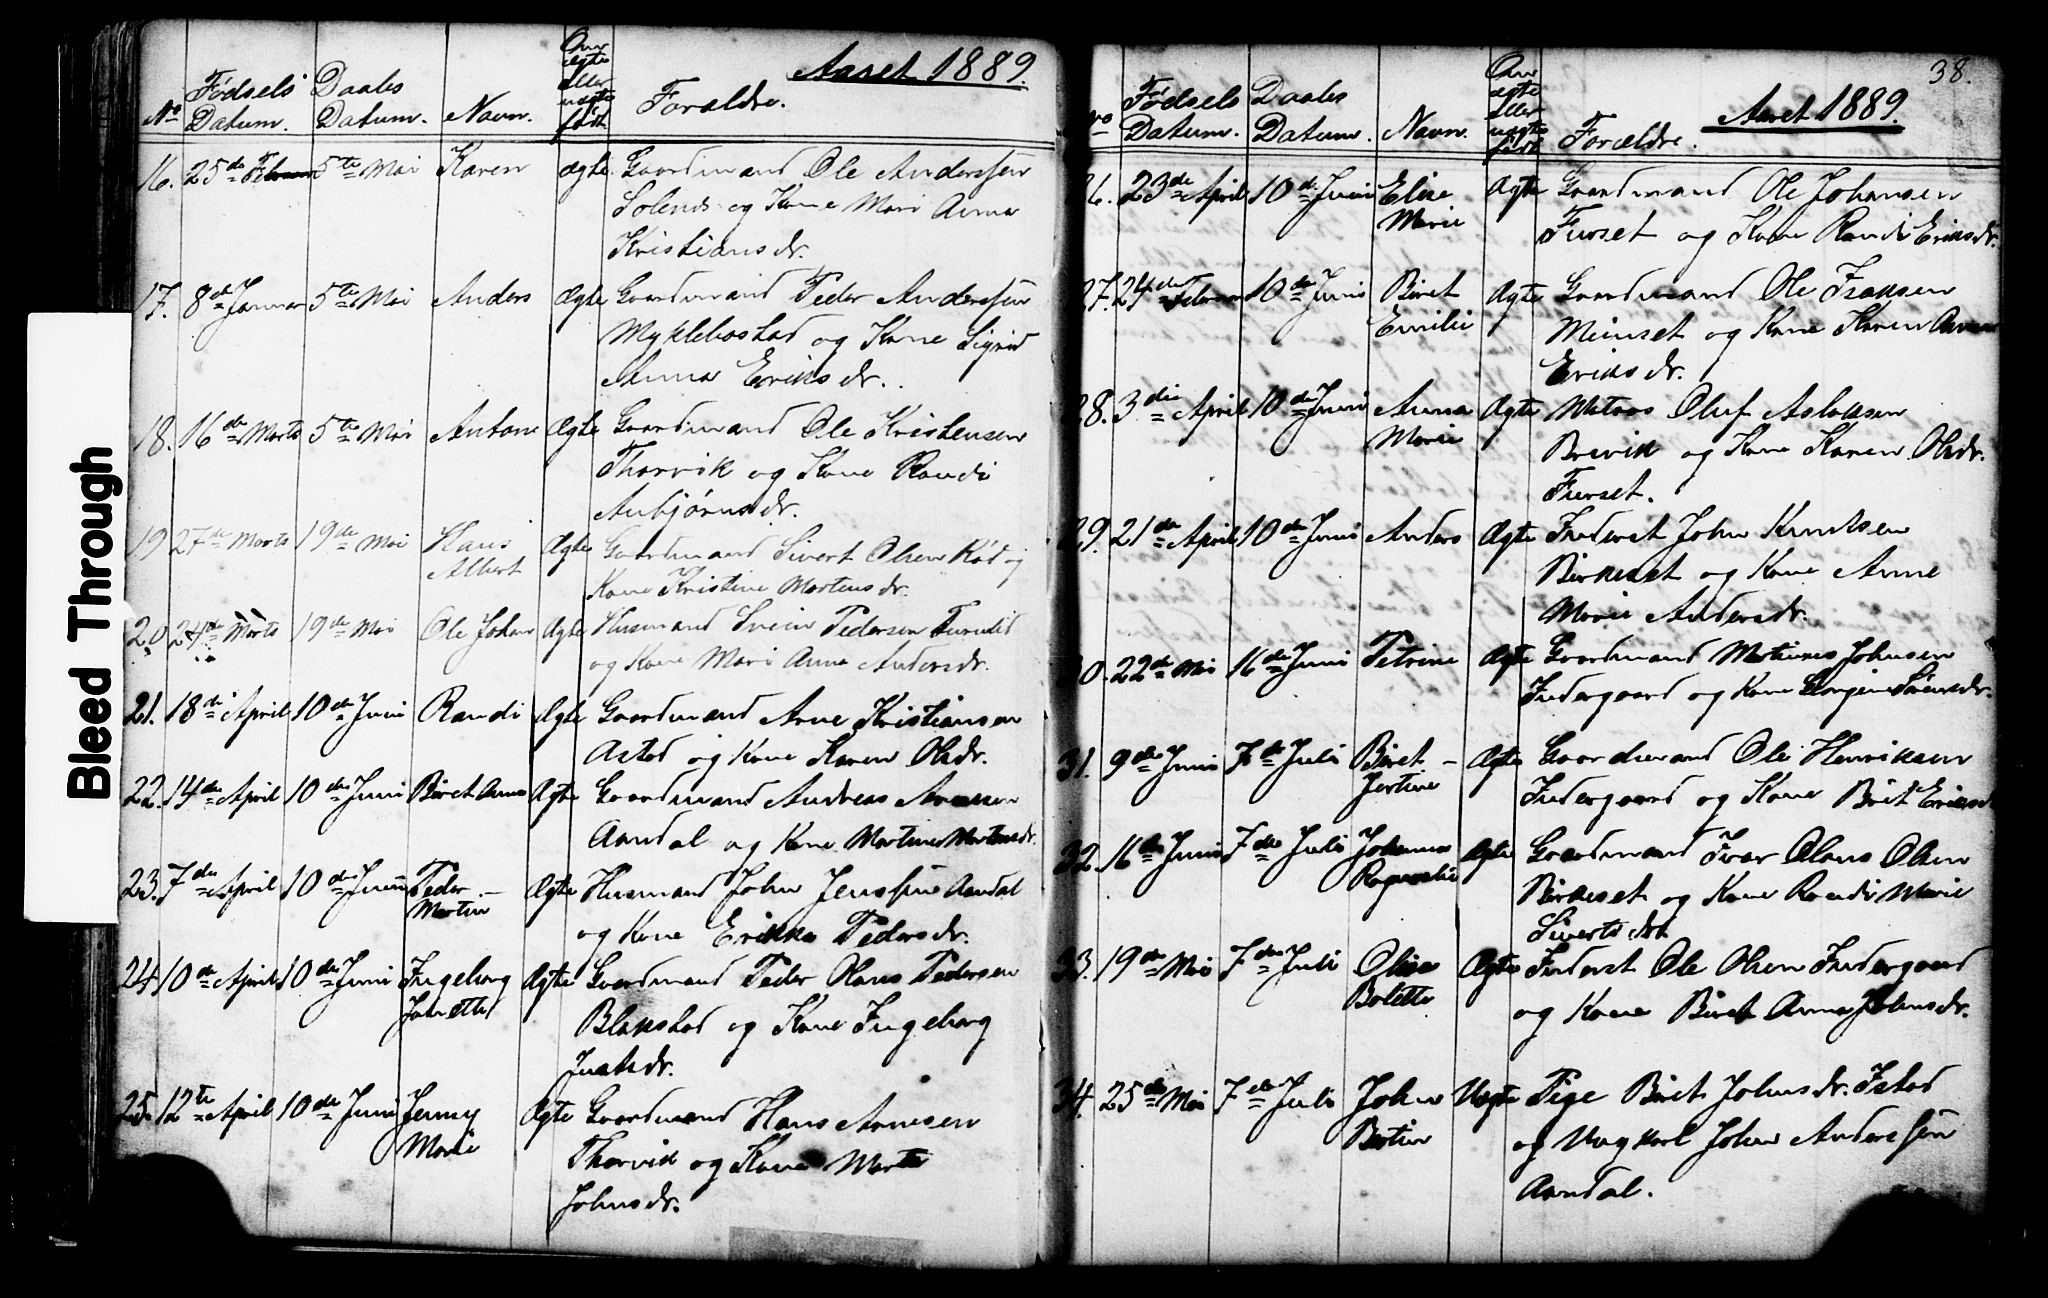 Bleed Through
Aaret 1889.
No Fødsels Datum. Daabs Datum. Navn. Om ægte eller uægte født. Forældre.
16. 25de Februar 5te Mai Karen Ægte Gaardmand Ole Anderssen
Solends og Kone Mari Anna
Kristiansdr.
17. 8de Januar 5te Mai Anders Ægte Gaardmand Peder Anderssen
Myklebostad og Kone Sigrid
Anna Eriksdr.
18. 16de Marts 5te Mai Antone Ægte Gaardmand Ole Kristensen
Thorvik og Kone Randi
Anbjørnsdr.
19 27de Marts 19de Mai Hans Ægte Gaardmand Sivert Olsen Rød og
Albert Kone Kristine Mortensdr.
20. 24de Marts 19de Mai Ole Johan Ægte Husmand Svein Pedersen
og Kone Mari Anna Andersdr.
21. 18de April 10de Juni Randi Ægte Gaardmand Arne Kristiansen
Astad og Kone Karen Olsdr.
22. 14de April 10de Juni Biret Anna Ægte Gaardmand Andreas Arnesen
Aandal og Kone Martine Martinsdr.
23. 7de April 10de Juni Peder- Ægte Husmand John Jenssen Aandal
Martin og Kone Erikka Pedersdr.
24. 10de April 10de Juni Ingeborg Ægte Gaardmand Peder Olaus Pedersen
Janette Blakstad og Kone Ingeborg
25. 12te April 10de Juni Jenny Ægte Gaardmand Hans Arnesen
Marie Thorvik og Kone Marte
Johnsdr.
38.
Aaret 1889.
No Fødsels Datum. Daabs Datum. Navn. Om ægte eller uægte født Forældre.
26. 23de April 10de Juni Elise Ægte Gaardmand Ole Johansen
Marie Furset og Kone Randi Eriksdr.
27. 24de Februar 10de Juni Biret Ægte Gaardmand Ole Isaksen
Emilie Meinset og Kone Karen Anna
Eriksdr.
28. 3die April 10de Juni Anna Ægte Matros Oluf Aslaksen
Marie Brevik og Kone Karen Olsdr.
Furset.
29. 21de April 10de Juni Anders Ægte Inderst John Knutsen
Birkeset og Kone Anne
Marie Andersdr.
30. 22de Mai 16de Juni Petrine Ægte Gaardmand Martinus Johnsen
Indergaard og Kone
31. 9de Juni 7de Juli Biret- Ægte Gaardmand Ole Henriksen
Jertine Indergaard og Kone Brit Eriksd
32. 16de Juni 7de Juli Johanna Ægte Gaardmand Ivar Olaus Olsen
Birkeset og Kone Randi Marie
Sivertsdtr
33. 19de Mai 7de Juli Olisa Ægte Inderst Ole Olsen Indergaard
Bolette og Kone Biret Anna Johnsdr.
34. 25de Mai 7de Juli John Uægte Pige Biret Johnsdr. Istad
Bertin og Ungkarl John Anderssen
Aandal.